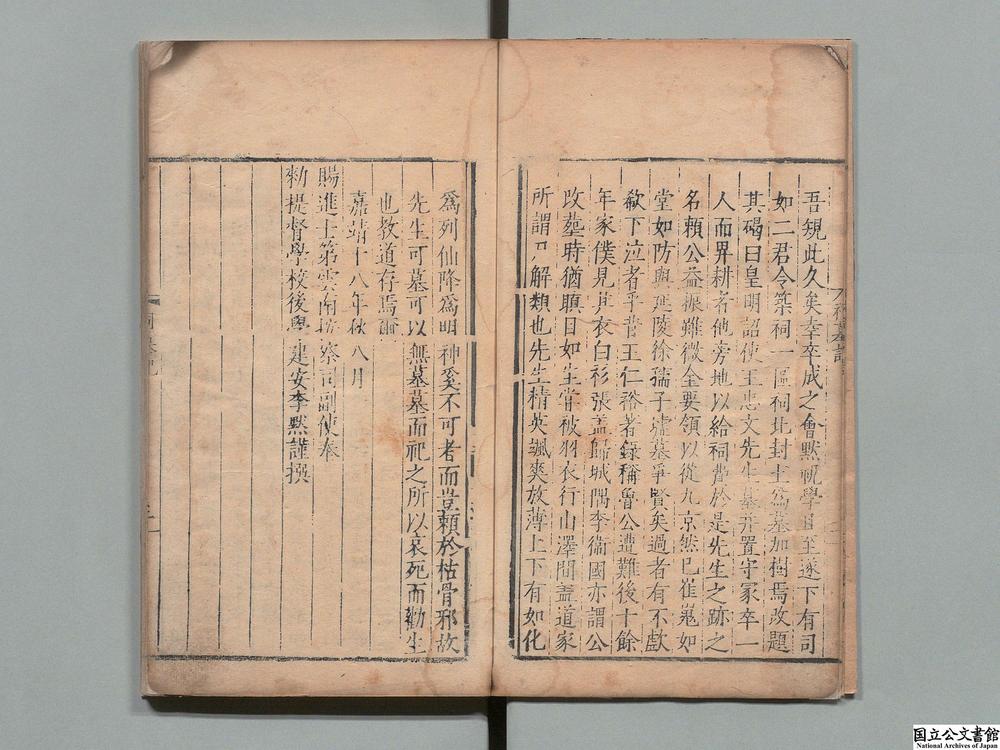 吾規此久矣幸卒成之會默視學且至遂下有司
如二君令築祠一區祠北封土為墓加樹焉改題
其碣曰皇明詔使王忠文先生墓并置守冢卒一
人而畀耕者他旁地以給祠費於是先生之跡之
名賴公益振雖微全要領以從九京然已崔嵬如
堂如防與延陵徐孺子墟墓爭賢矣過者有不欷
歔下泣者乎昔王仁裕著錄稱魯公遭難後十餘
年家僕見其衣白衫張蓋歸城隅李衞國亦謂公
改塟時猶瞋目如生常被羽衣行山澤間蓋道家
所謂尸解類也先生精英颯爽放薄上下有如化
為列仙降為明神奚不可者而豈賴於枯骨邪故
先生可墓可以無墓墓而祀之所以哀死而勸生
也教道存焉爾
嘉靖十八年秋八月
賜進士第雲南按察司副使奉
勑提督學校後學建安李默謹撰
国立公文書館
National Archives of Japan